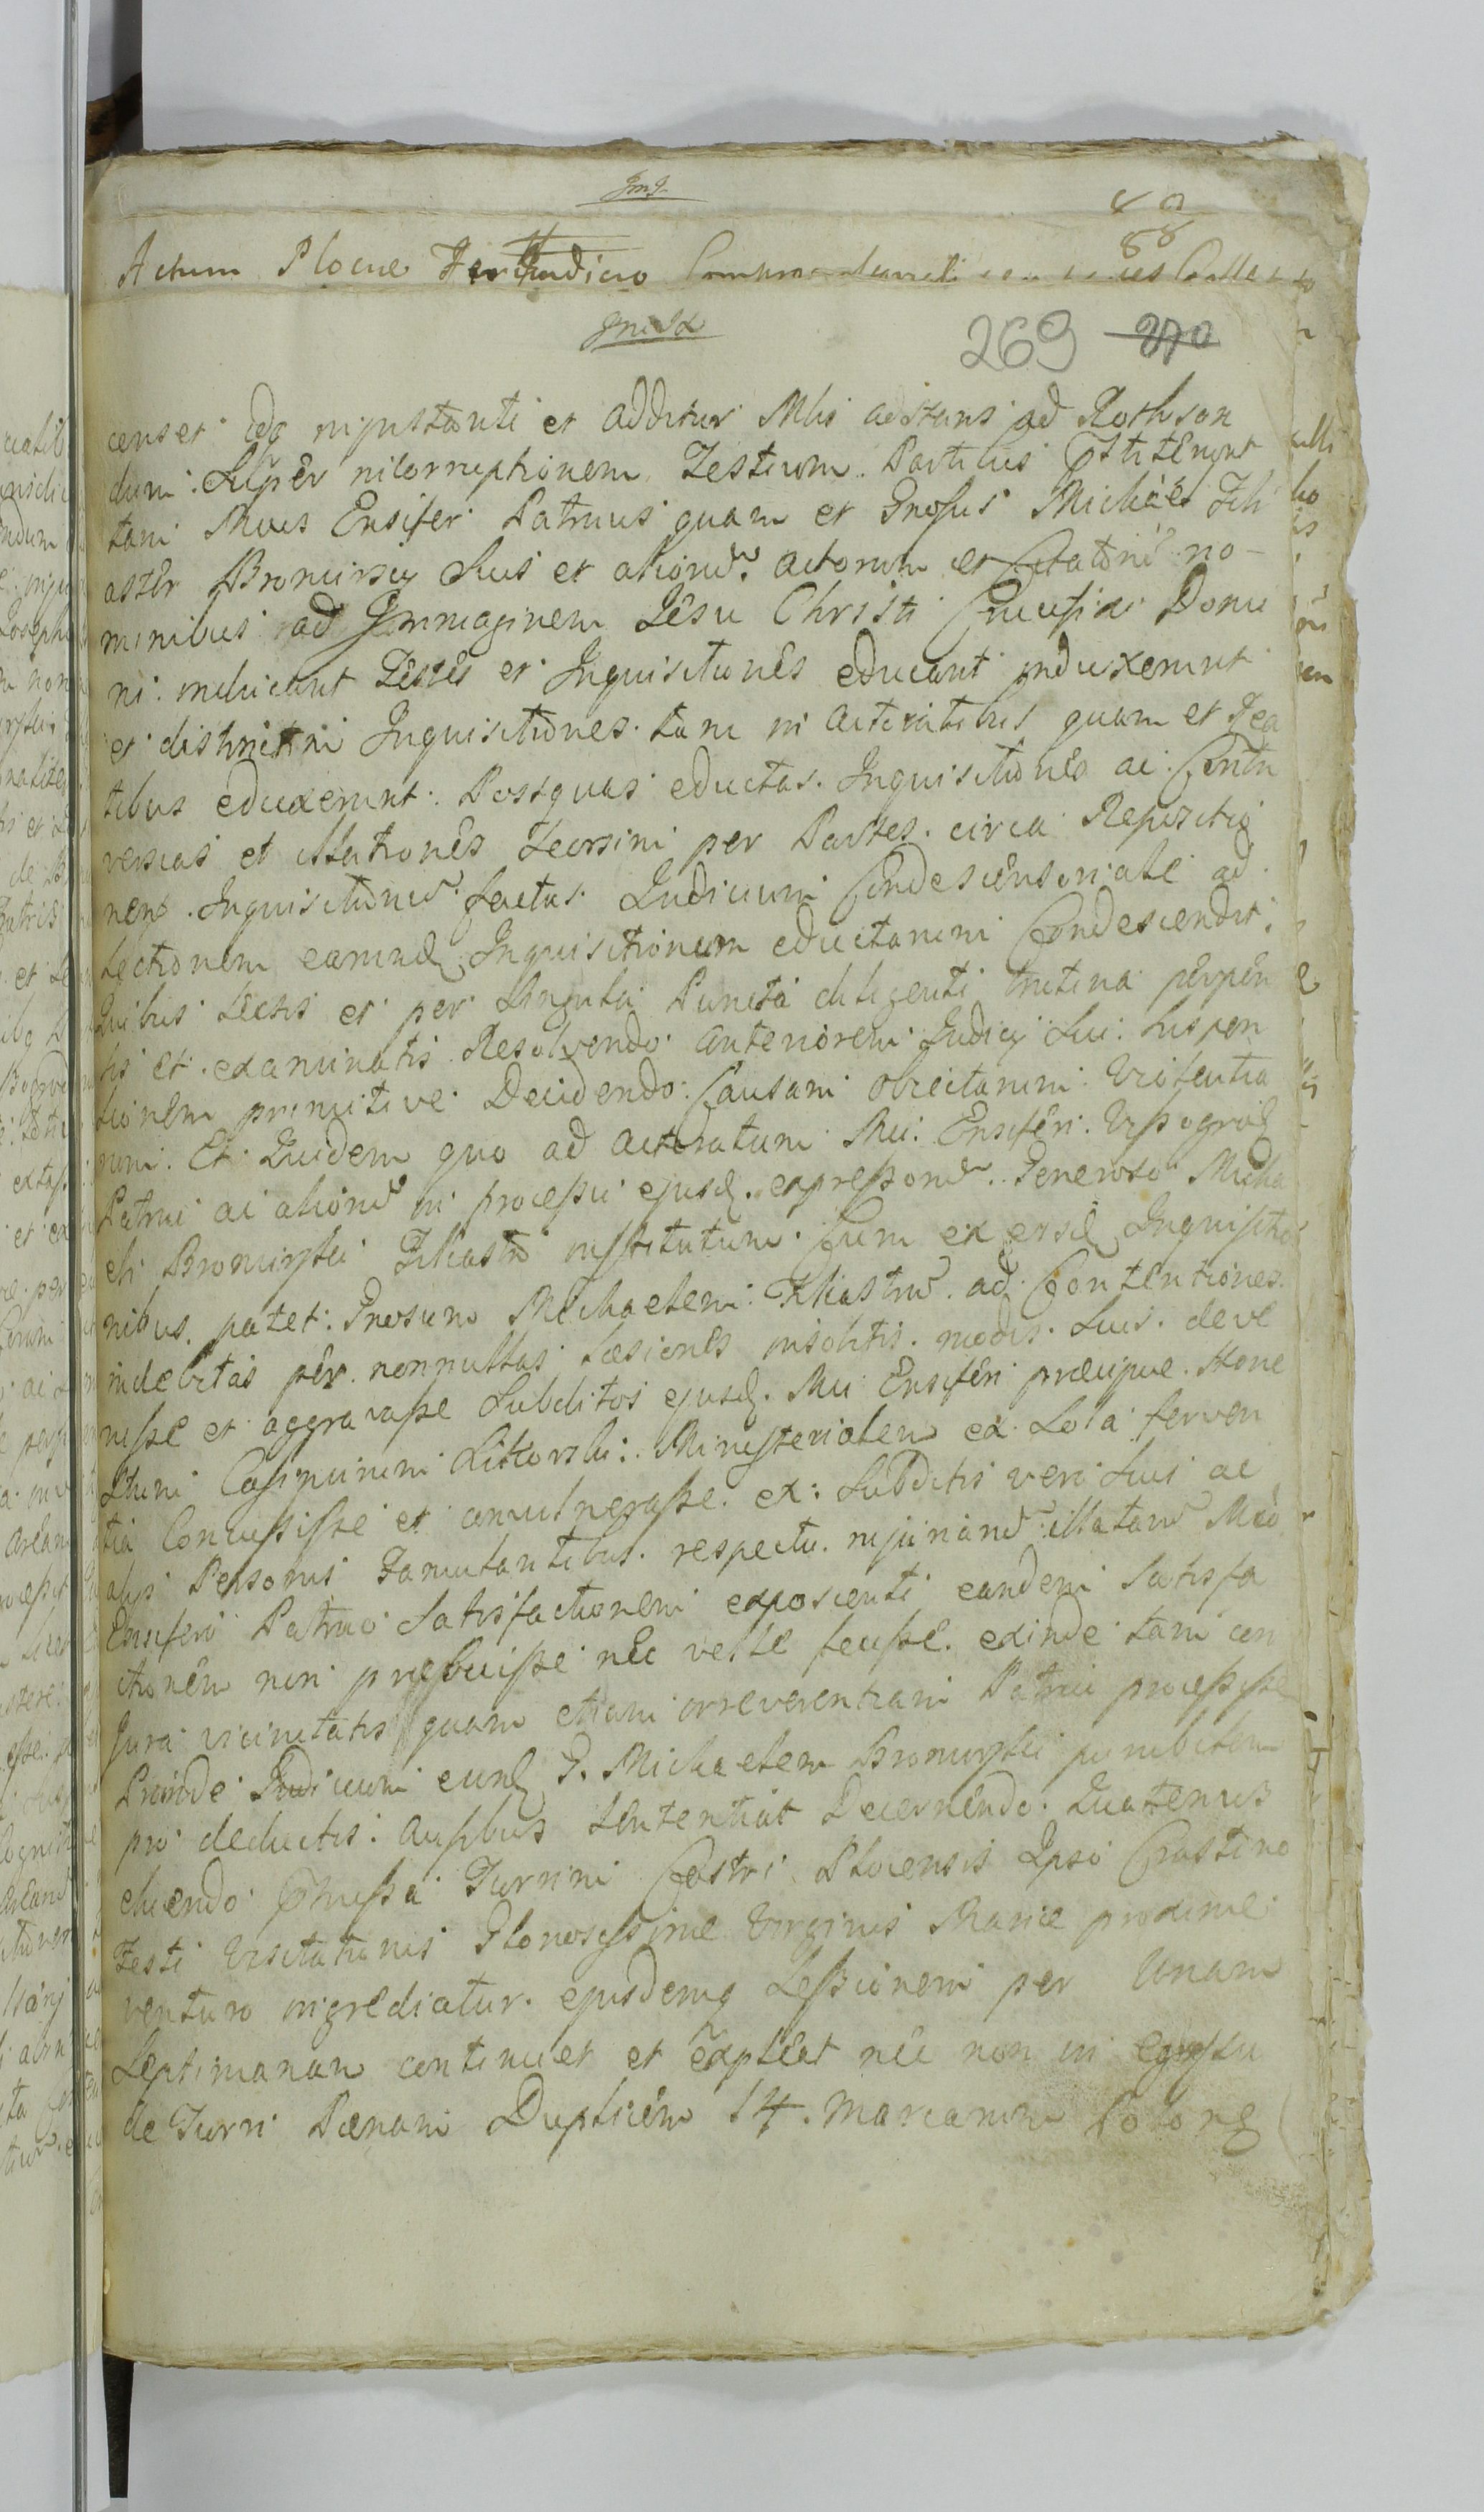 88
Actum Plocae
269 270
censeri injustanti et additur Mlis adstans ad Rothison
dum. Super incorruptionem Testium. Partibus
tam Mcus Ensifer Patruus quam et Grosus Michael Fili
aster Bromirsky suo et aliorum actorum et Citatorum no-
minibus ad Immaginem Jesu Christi Crucifixi Domi
ni inducant Testes et Inquisitiones educant induxerunt
et districtim Inquisitiones tam in actoratibus quam et Rea
tibus eduxerunt. Postquas eductas Inquisitiones ac Contro
versias et illationes Seorsim per Partes circa Repositio
nem Inquisitionum factas Judicium Condescensoriale ad
Lectionem earund Inquisitionum eductarum Condescendit.
Quibus Lectis et per Singula Puncta diligenti trutina perpen
sis et examinatis Resolvendo anteriorem Judicij sui Suspen
sionem primitive Decidendo Causam obiectarum Violentia
rum. Et Quidem quo ad actoratum Mci Ensiferi Wyssogrod
Patrui ac aliorum in processu ejusd. expressorum Generoso Micha
eli Bromirski Filiastro institutum. Cum ex eisd Inquisitio
nibus patet Grosum Michaelem Filiastrum ad Contentiones
indebitas per nonnullas Laesiones insolitis modis suis deve
nisse et aggravasse Subditos ejusd. Mci Ensiferi praecipue Hone
stum Casimirum Ministerialem ex Sola ferven
tia Concussisse et convulnerasse ex Subditis vero suis ac
alijs Personis Famulantibus respectu injuriarum illatarum Mco
Ensifero Patruo Satisfactionem exposcenti eandem Satisfa
ctionem non praebuisse nec velle fecisse exinde tam con
Jura vicinitatis quam etiam irreverentiam Patrui processisse
Proinde Judicium eund G. Michaelem Bromirski punibilem
pro deductis ausibus Sententiat Decernendo Quatenus
eluendo Commissa Turrim Castri Plocensis Ipso Crastino
Festi Visitationis Gloriosissimae Virginis Mariae proxime
venturo ingrediatur ejusdemq Sessionem per Unam
Septimanam continuet et expleat nec non in egressu
de Turri Paenam Duplicem 14. marcarum Polong